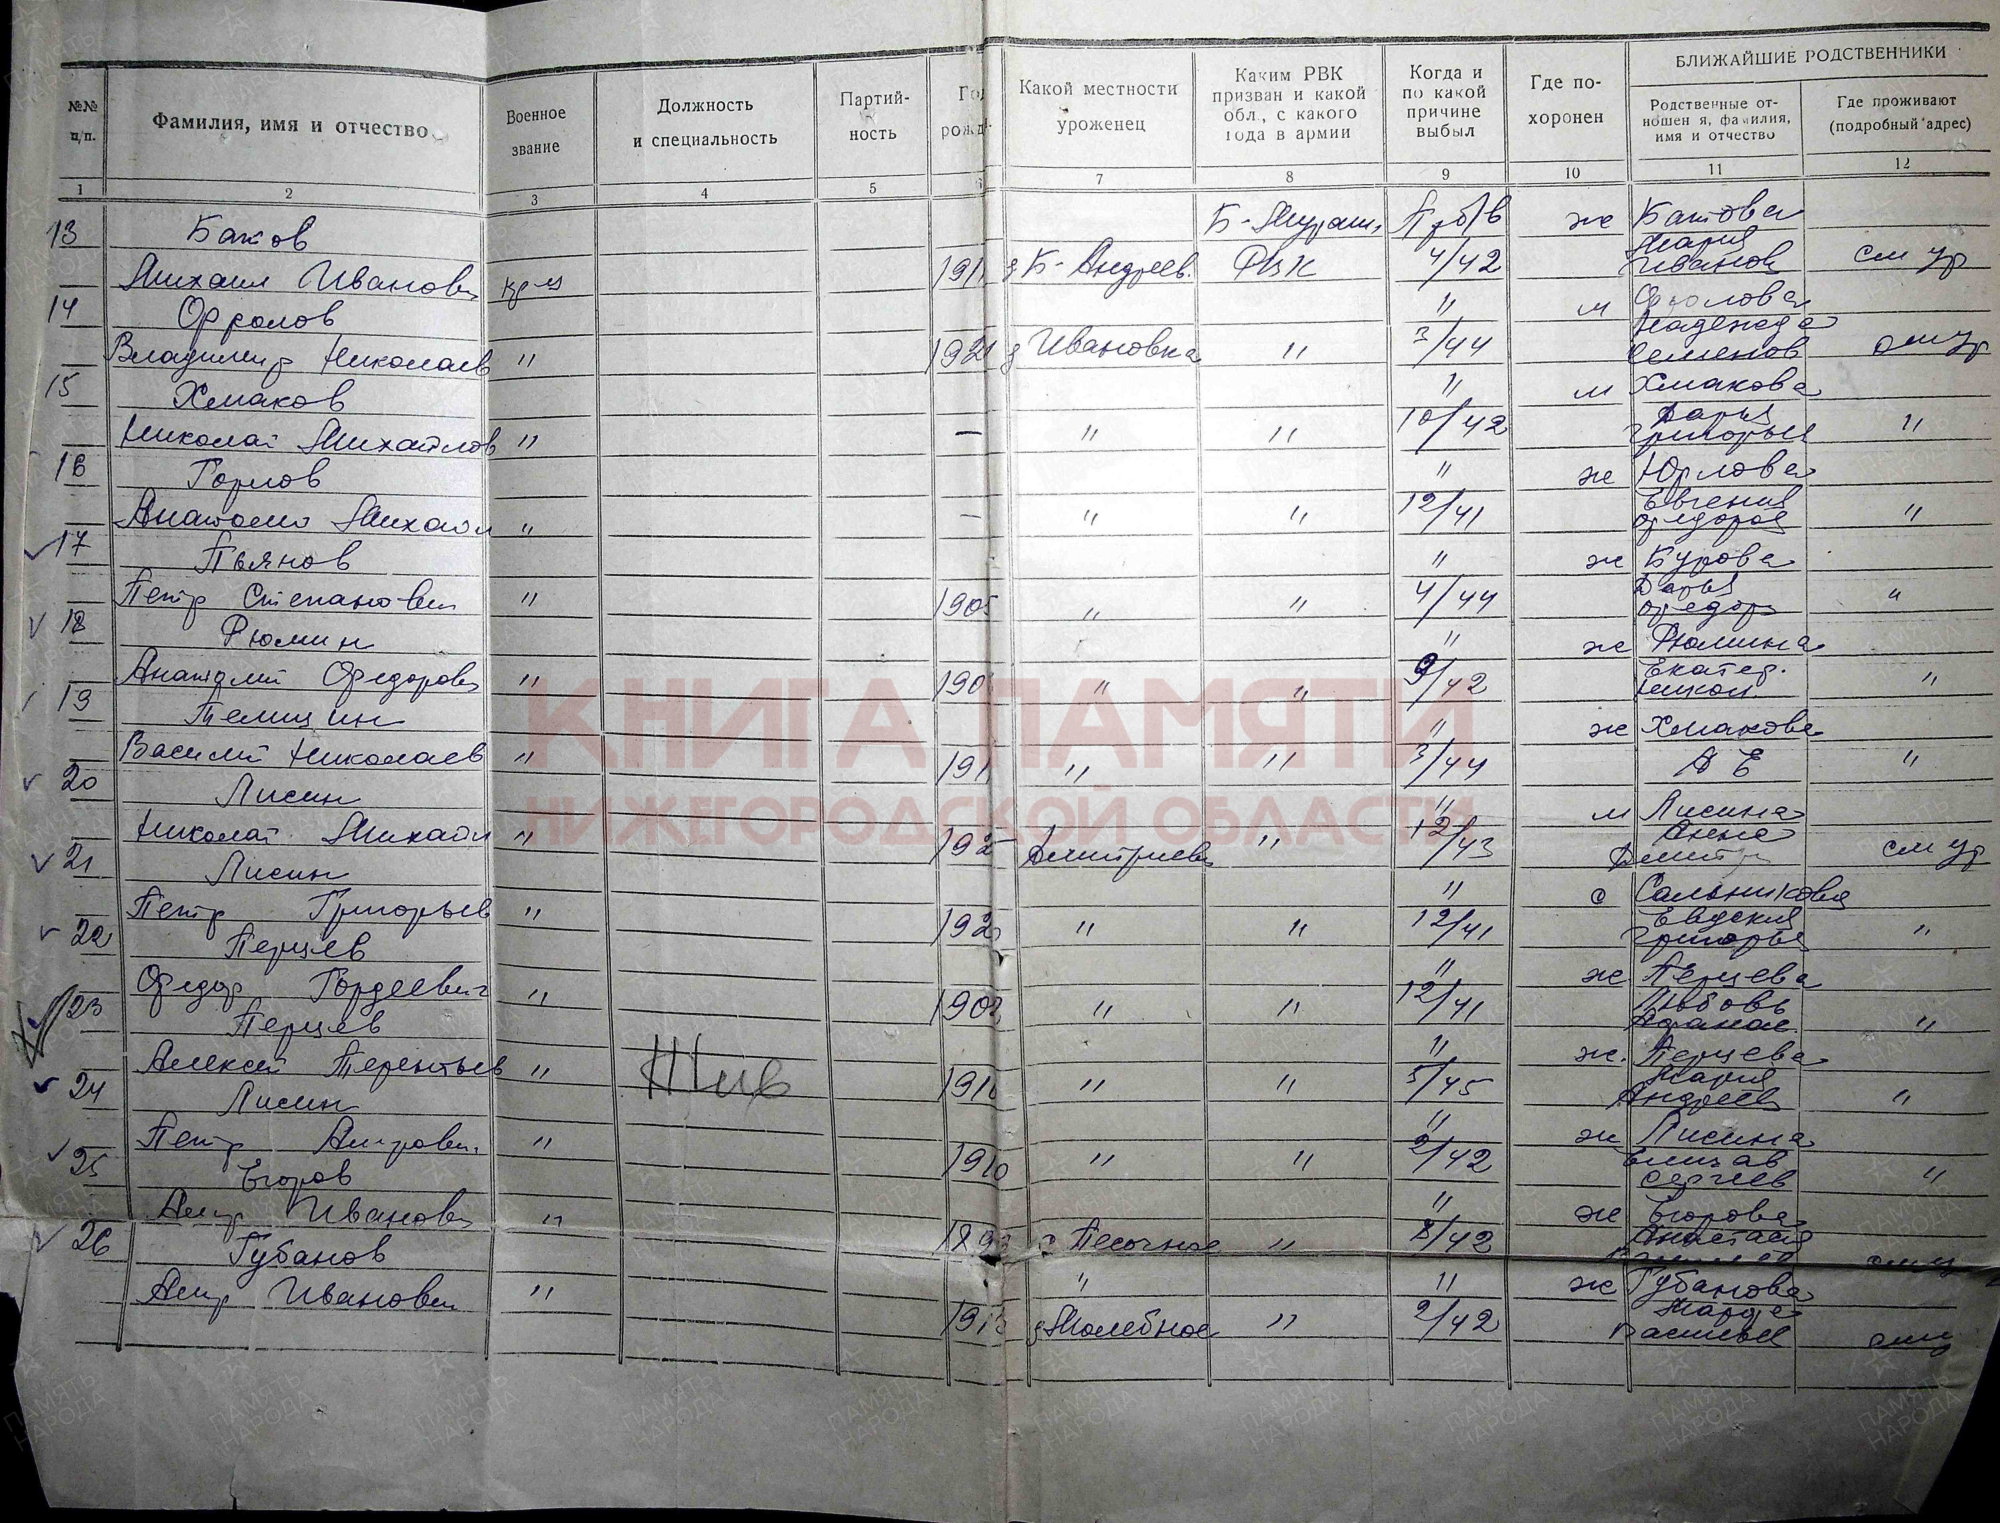 №№ п/п.
Фамилия, имя и отчество
Военное звание
Должность и специальность
Партий-
ность
Год
рожд
Какой местности
уроженец
Каким РВК
призван и какой
обл., с какого
года в армии
Когда и
по какой
причине
выбыл
Где по-
хоронен
БЛИЖАЙШИЕ РОДСТВЕННИКИ
Родственные от-
ношения, фамилия,
имя и отчество
Где проживают
(подробный адрес)
1 2 3 4 5 6 7 8 9 10 11 12
13 Батов Б-Мураш. Пр б/в ж Батова
Мария
Михаил Иванович кр-ц 191 д Б-Андреев. РВК 4/42 Иванов см ур
14 Фролов " м Фролова
Надежда
Владимир Николаев " 192 д Ивановка " 3/44 Семенов
15 Хмаков " м Хмакова
Дарья
Николай Михайлов " — " " 10/42 Григорьев "
16 " ж Юрлова
Евгения
Анатолий Михайл " — " " 12/41 Федоров "
17 Пьянов " ж Бурова
Дарья
Петр Степанович " 1905 " " 4/44 Федор "
18 Рюмин " ж Рюмина
Екатер.
Анатолий Федорович " 190 " " 9/42 Никол. "
19 Телицин " ж Хмакова
Василий Николаев " 191 " " 3/44 "
20 Лисин " м Лисина
Анна
Николай Михайл " 192 Дмитриев " 12/43 Дмитр см ур
21 Лисин " с Сальникова
Петр Григорьев " 192 " " 12/41 Григорьев "
22 Перцев " ж Перцева
Любовь
Федор Гордеевич " 190 " " 12/41 Афанас. "
23 Перцев " ж. Перцева
Мария
Алексей Терентьев " Жив 191 " " 5/45 Андреев "
24 Лисин " ж Лисина
Елизав
Петр " 1910 " " 2/42 Сергеев "
25 Егоров " ж Егорова
Анастасия
Алдр Иванович " 189 с Песочное " 8/42
26 Губанов " " ж Губанова
Алдр Иванович " 191 д Молебное " 2/42 Васильев
КНИГА ПАМЯТИ
НИЖЕГОРОДСКОЙ ОБЛАСТИ
ПАМЯТЬ
НАРОДА